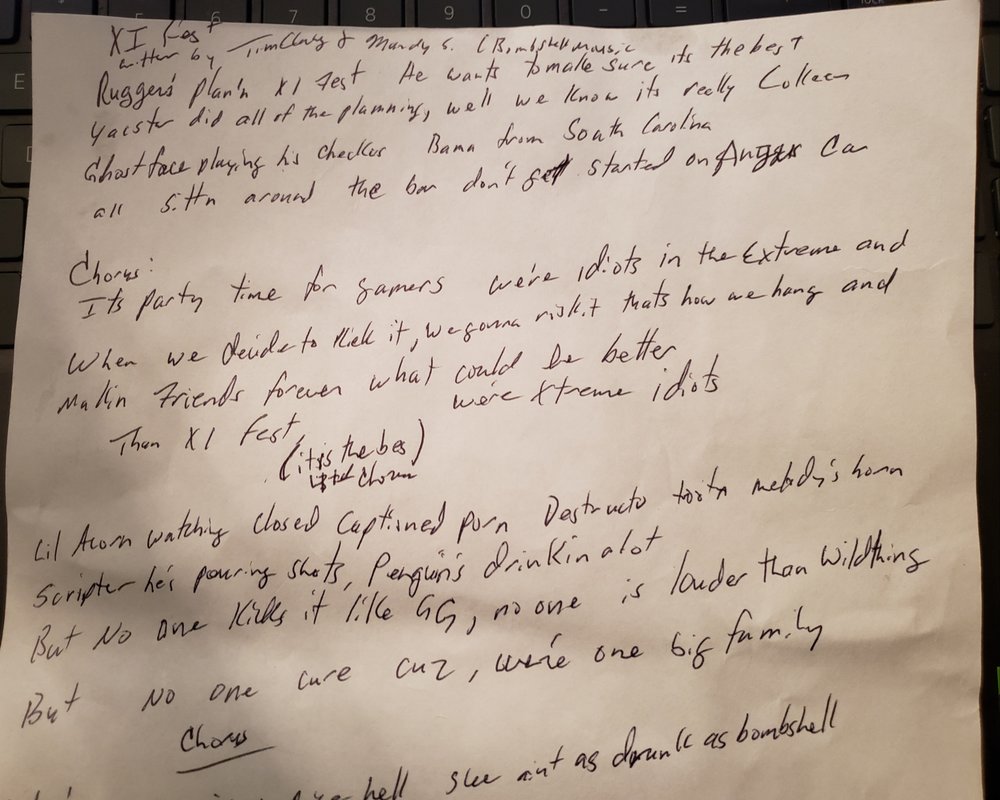 XI Fest
written by Tim Clary & Mandy S. (Bombshell Music
Rugger's plan'n XI Fest He wants to make sure its the best
Yacster did all of the planning, well we know its really Colleen
Ghostface playing his checkers Bama from South Carolina
all sittn around the bar don't get started on Car
Chorus:
Its party time for gamers we're idiots in the Extreme and
When we decide to kick it, we gonna risk it thats how we hang and
Makin Friends forever what could be better
Than XI Fest we're Xtreme idiots
(its the bes)
Chorus
Lil Acorn watching closed captioned porn Destructo tootn melody's horn
Scripter he's pouring shots, Penguin's drinkin alot
But No one kills it like GG, no one is louder than Wildthing
But No one cure cuz, we're one big family
Chorus
hell she aint as drunk as bombshell